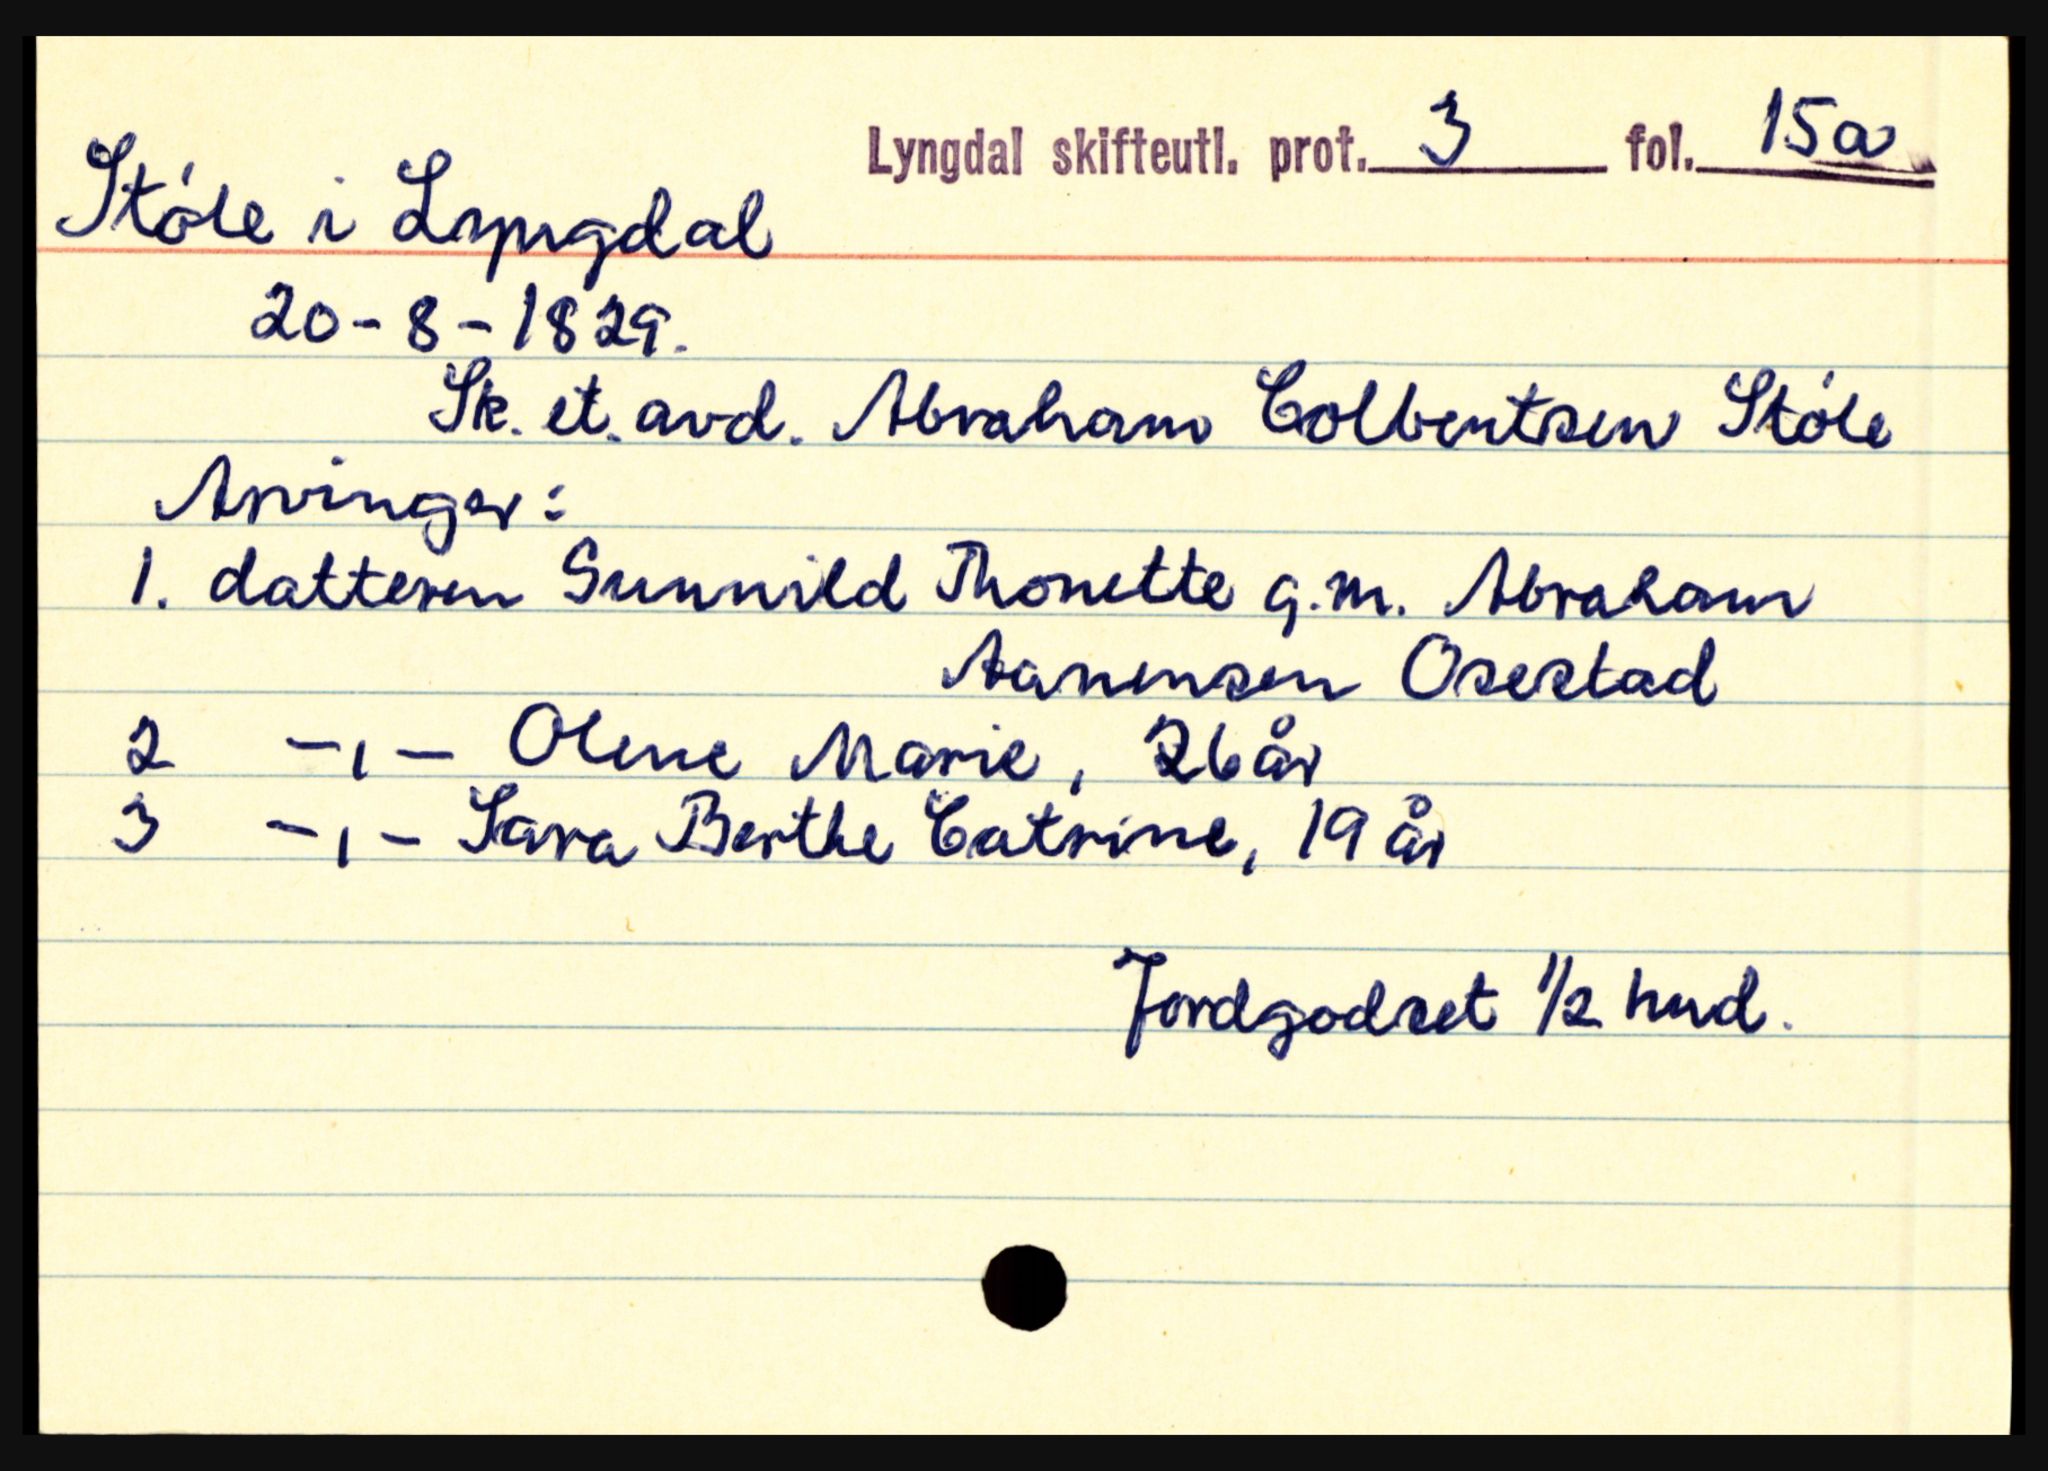 Lyngdal skifteutl. prot. 3 fol. 15a
Støle i Lyngdal
20-8-1829.
Sk. et. avd. Abraham Colbentsen Støle
Arvinger:
1. datteren Gunnild Thonette g.m. Abraham
Aanensen Osestad
2 -,- Olene Marie, 26 år
3 -,- Sara Berthe Catrine, 19 år
Jordgodset 1/2 hud.